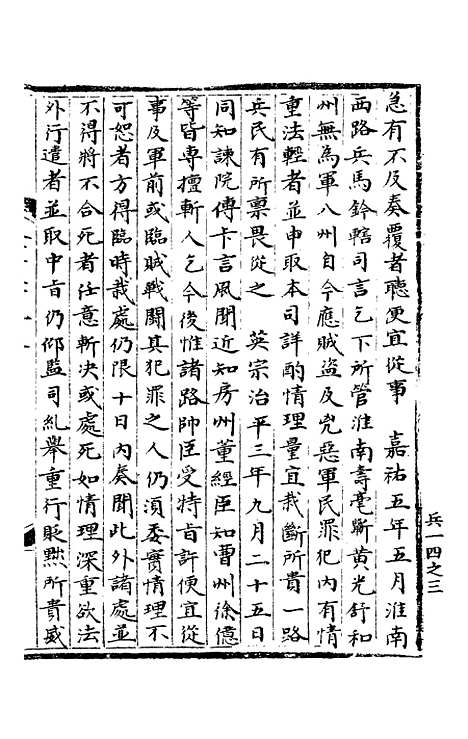 急有不及奏覆者聽便宜從事　嘉祐五年五月淮南
西路兵馬鈐轄司言乞下所管淮南壽亳蘄黃光舒和
州無為軍八州自今應賊盜及兇惡軍民罪犯內有情
重法輕者並申取本司詳酌情理量宜裁斷所貴一路
兵民有所稟畏從之　英宗治平三年九月二十五日
同知諫院傅卞言風聞近知房州董經臣知曹州徐億
等皆專擅斬人乞今後惟諸路帥臣受特旨許便宜從
事及軍前或臨賊戰鬬真犯罪之人仍須委實情理不
可恕者方得臨時裁處仍限十日內奏聞此外諸處並
不得將不合死者任意斬決或處死如情理深重欲法
外行遣者並取中旨仍仰監司糺舉重行貶黜所貴威
兵一四之三